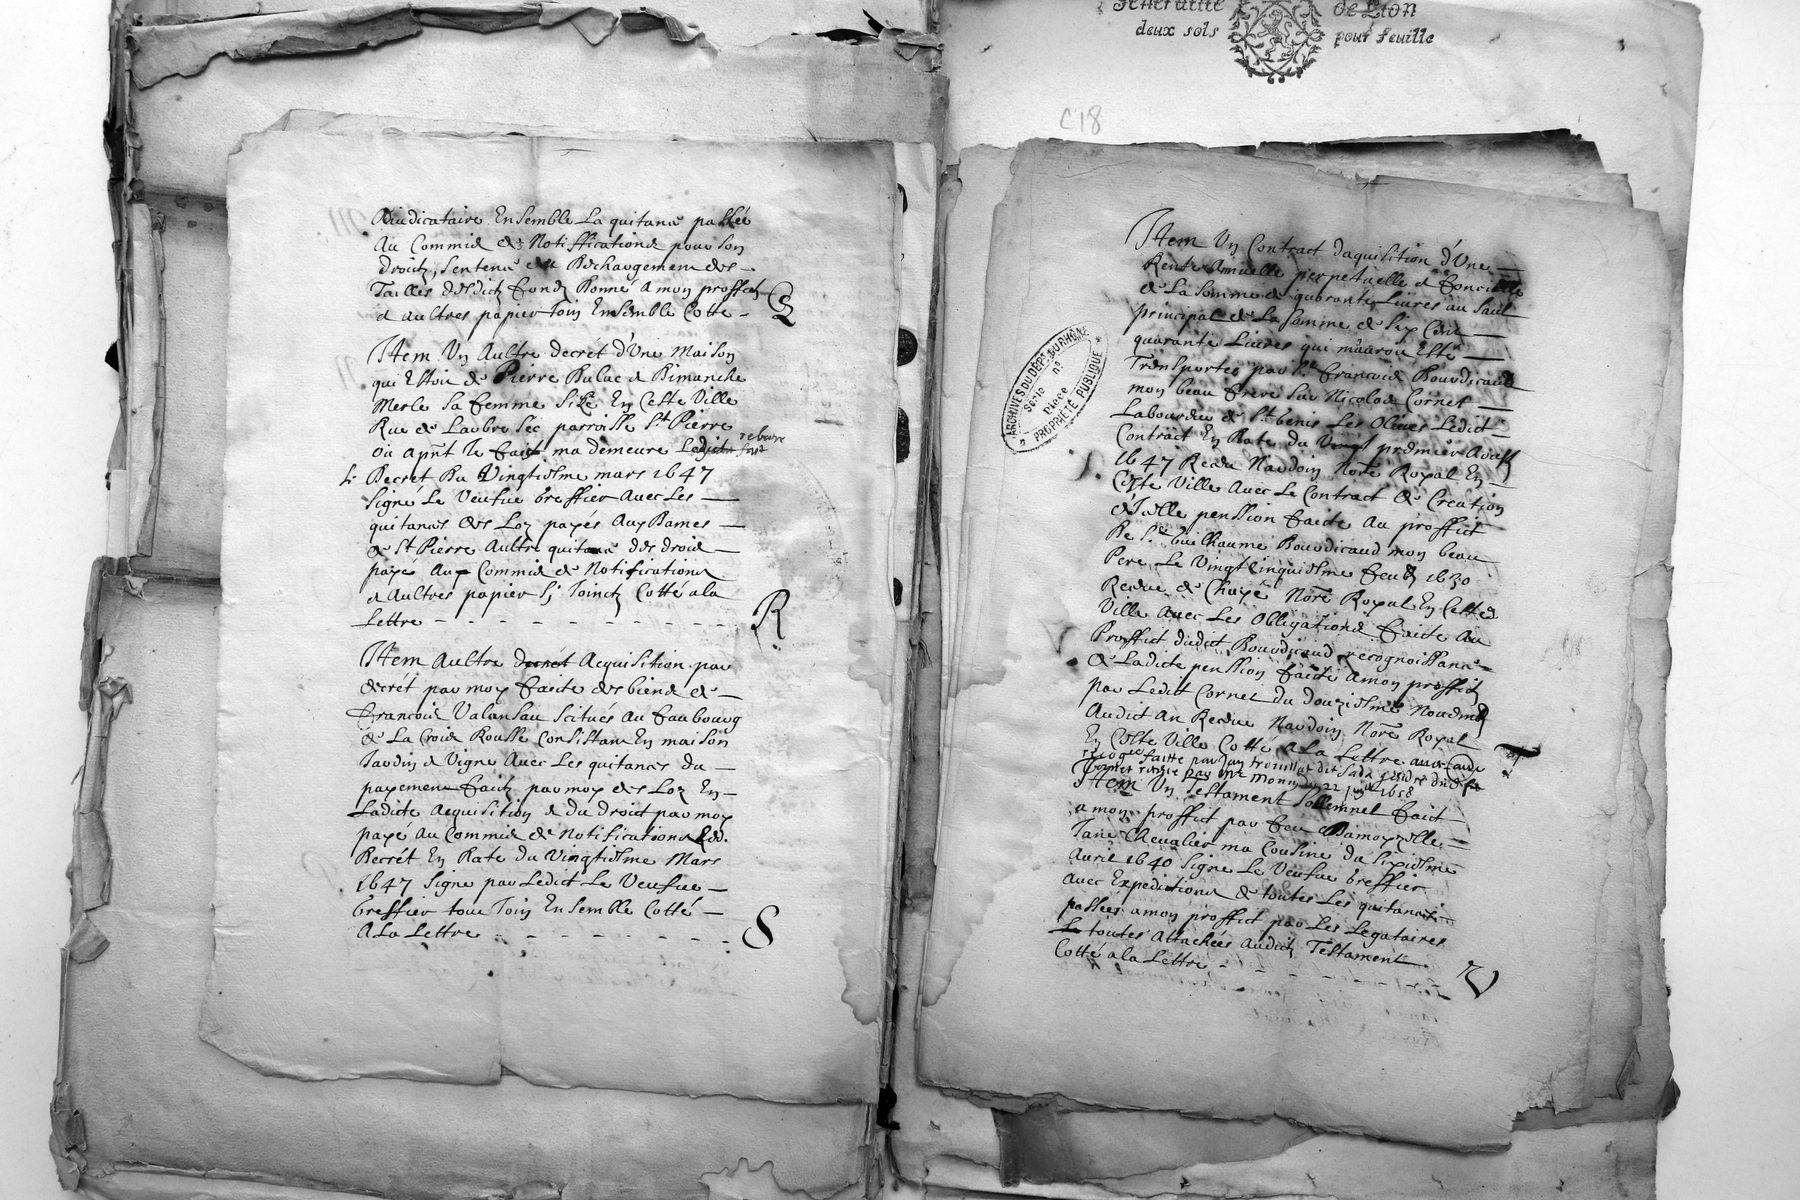 Adiudicataire Ensemble La quitance passée
Au Commis des Notiffications pour son
droict, sentence du deschargement des
Tailles desdictz fondz Donné A mon proffict
et aultres papier Join Ensemble Cotté Q
Item Un Aultre decret d'Une Maison
qui Estoit de Pierre et Dimanche
Merle sa femme size En Ceste Ville
Rue de Larbre Sec parroisse St Pierre
ou apñt Je faict ma demeure Ledict
Le Decret Du Vingtiesme mars 1647
Signé Le Veufue Greffier Avec Les
quitances des Loz payés Aux Dames
de St Pierre Aultre quitance des droict
payé Au Commis de Notifications
et Aultres papier sy Joinctz Cotté a la
Lettre R
Item Aultre decrét Acquisition par
decrét par moy faicte des biens de
François Valansau scitués Au faubourg
de La Croix Rousse Consistant En maison
Jardin et Vigne Avec Les quitances du
payement faictz par moy des Loz En
Ladicte Acquisition et du droict par moy
payé Au Commis de Notifications Led.
Decrét En Date du Vingtiesme Mars
1647 Signé par Ledict Le Veufue
Greffier tout Join Ensemble Cotté
A La Lettre S
Generalite de Lion
deux sols pour feuille
C18
Item Un Contract daquisition d'Une
Rente Annuelle perpetuelle et fonciere
de La Somme de quarante Liures au Saul
principal de La somme de Six Cent
quarante Liures qui m'auroit Esté
Transportée par Sr. François Bourdicaud
mon beau frere sur Nicolas Cornet
Laboureur de St Genis Les Olives Ledict
Contract En Date du Vingt premier Aoust
1647 Receu Naudoin Nore Royal En
Ceste Ville Avec Le Contract de Creation
d'Icelle penssion faicte Au proffict
De Sr. Guilhaume Bourdicaud mon beau
Pere Le Vingt cinquiesme feur 1630
Receue de Nore Royal En Ceste
Ville Avec Les Obligations faicte Au
Proffict dudict Bourdicaud recognoissance
de Ladicte penssion faicte A mon proffict
par Ledict Cornet du douziesme Nouembr
Audict An Receue Naudoin Nore Royal
En Ceste Ville Cotté A La Lettre T
faitte par Jan dit
Cornet par Me 22 1658
Item Un Testament Sollemnel faict
a mon proffict par feue Damoyzelle
Jane Cheualier ma Cousine du Sixiesme
Auril 1640 Signé Le Veufue Greffier
Avec Expeditions de toutes Les quitances
passées a mon proffict par Les Legataires
Le toutes Attachées Audict Testament
Cotté a la Lettre V
ARCHIVES DU DÉPT. DU RHÔNE
Série nº
Pièce
PROPRIÉTÉ PUBLIQUE